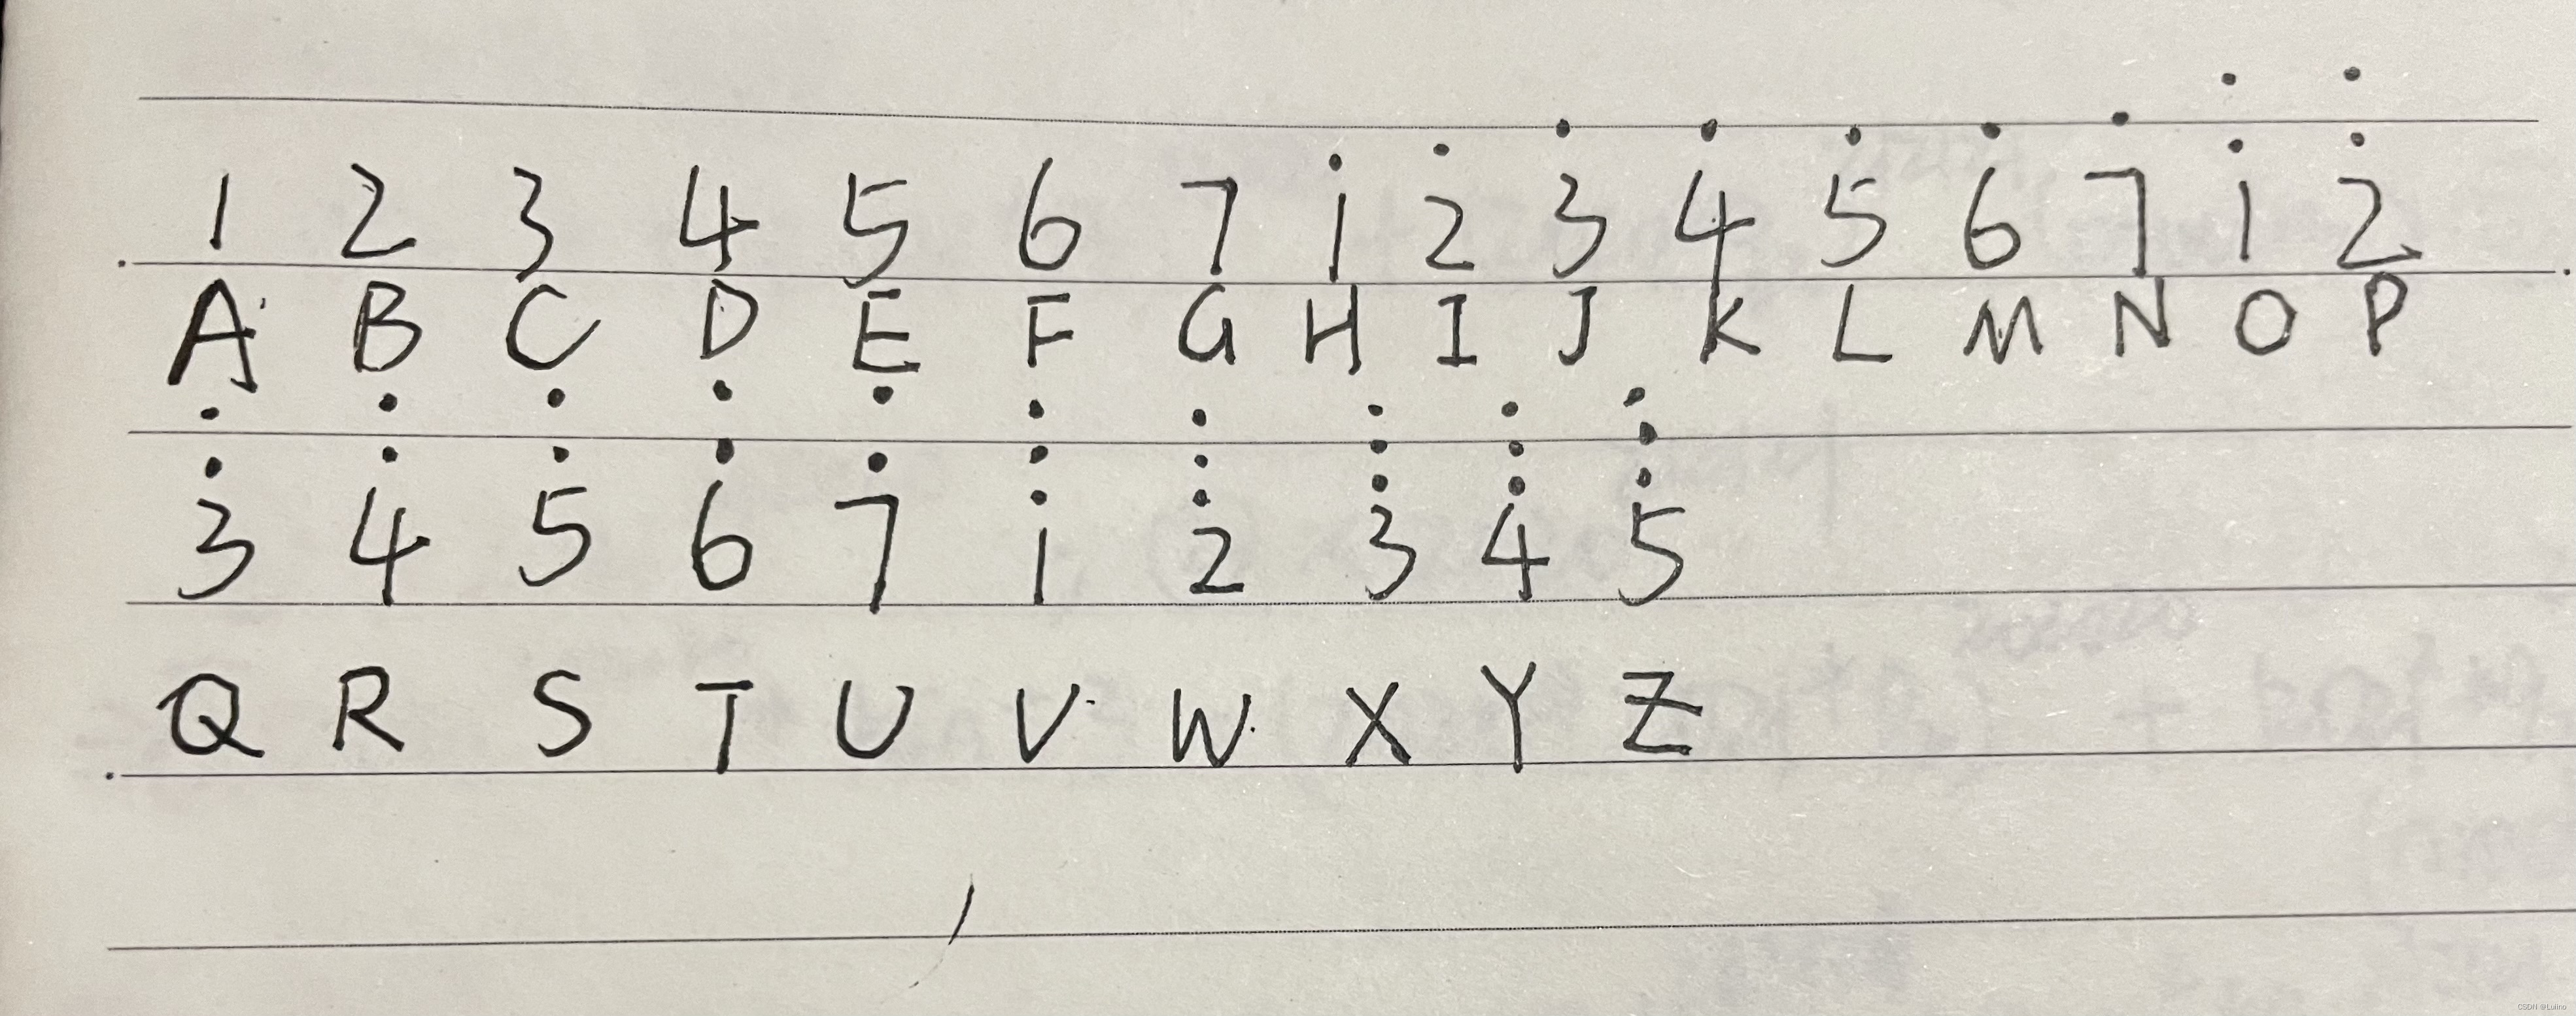 1 2 3 4 5 6 7 1̇ 2̇ 3̇ 4̇ 5̇ 6̇ 7̇ 1̇̇ 2̇̇
A B C D E F G H I J K L M N O P
3̇̇ 4̇̇ 5̇̇ 6̇̇ 7̇̇ 1̇̇̇ 2̇̇̇ 3̇̇̇ 4̇̇̇ 5̇̇̇
Q R S T U V W X Y Z
CSDN @Luino